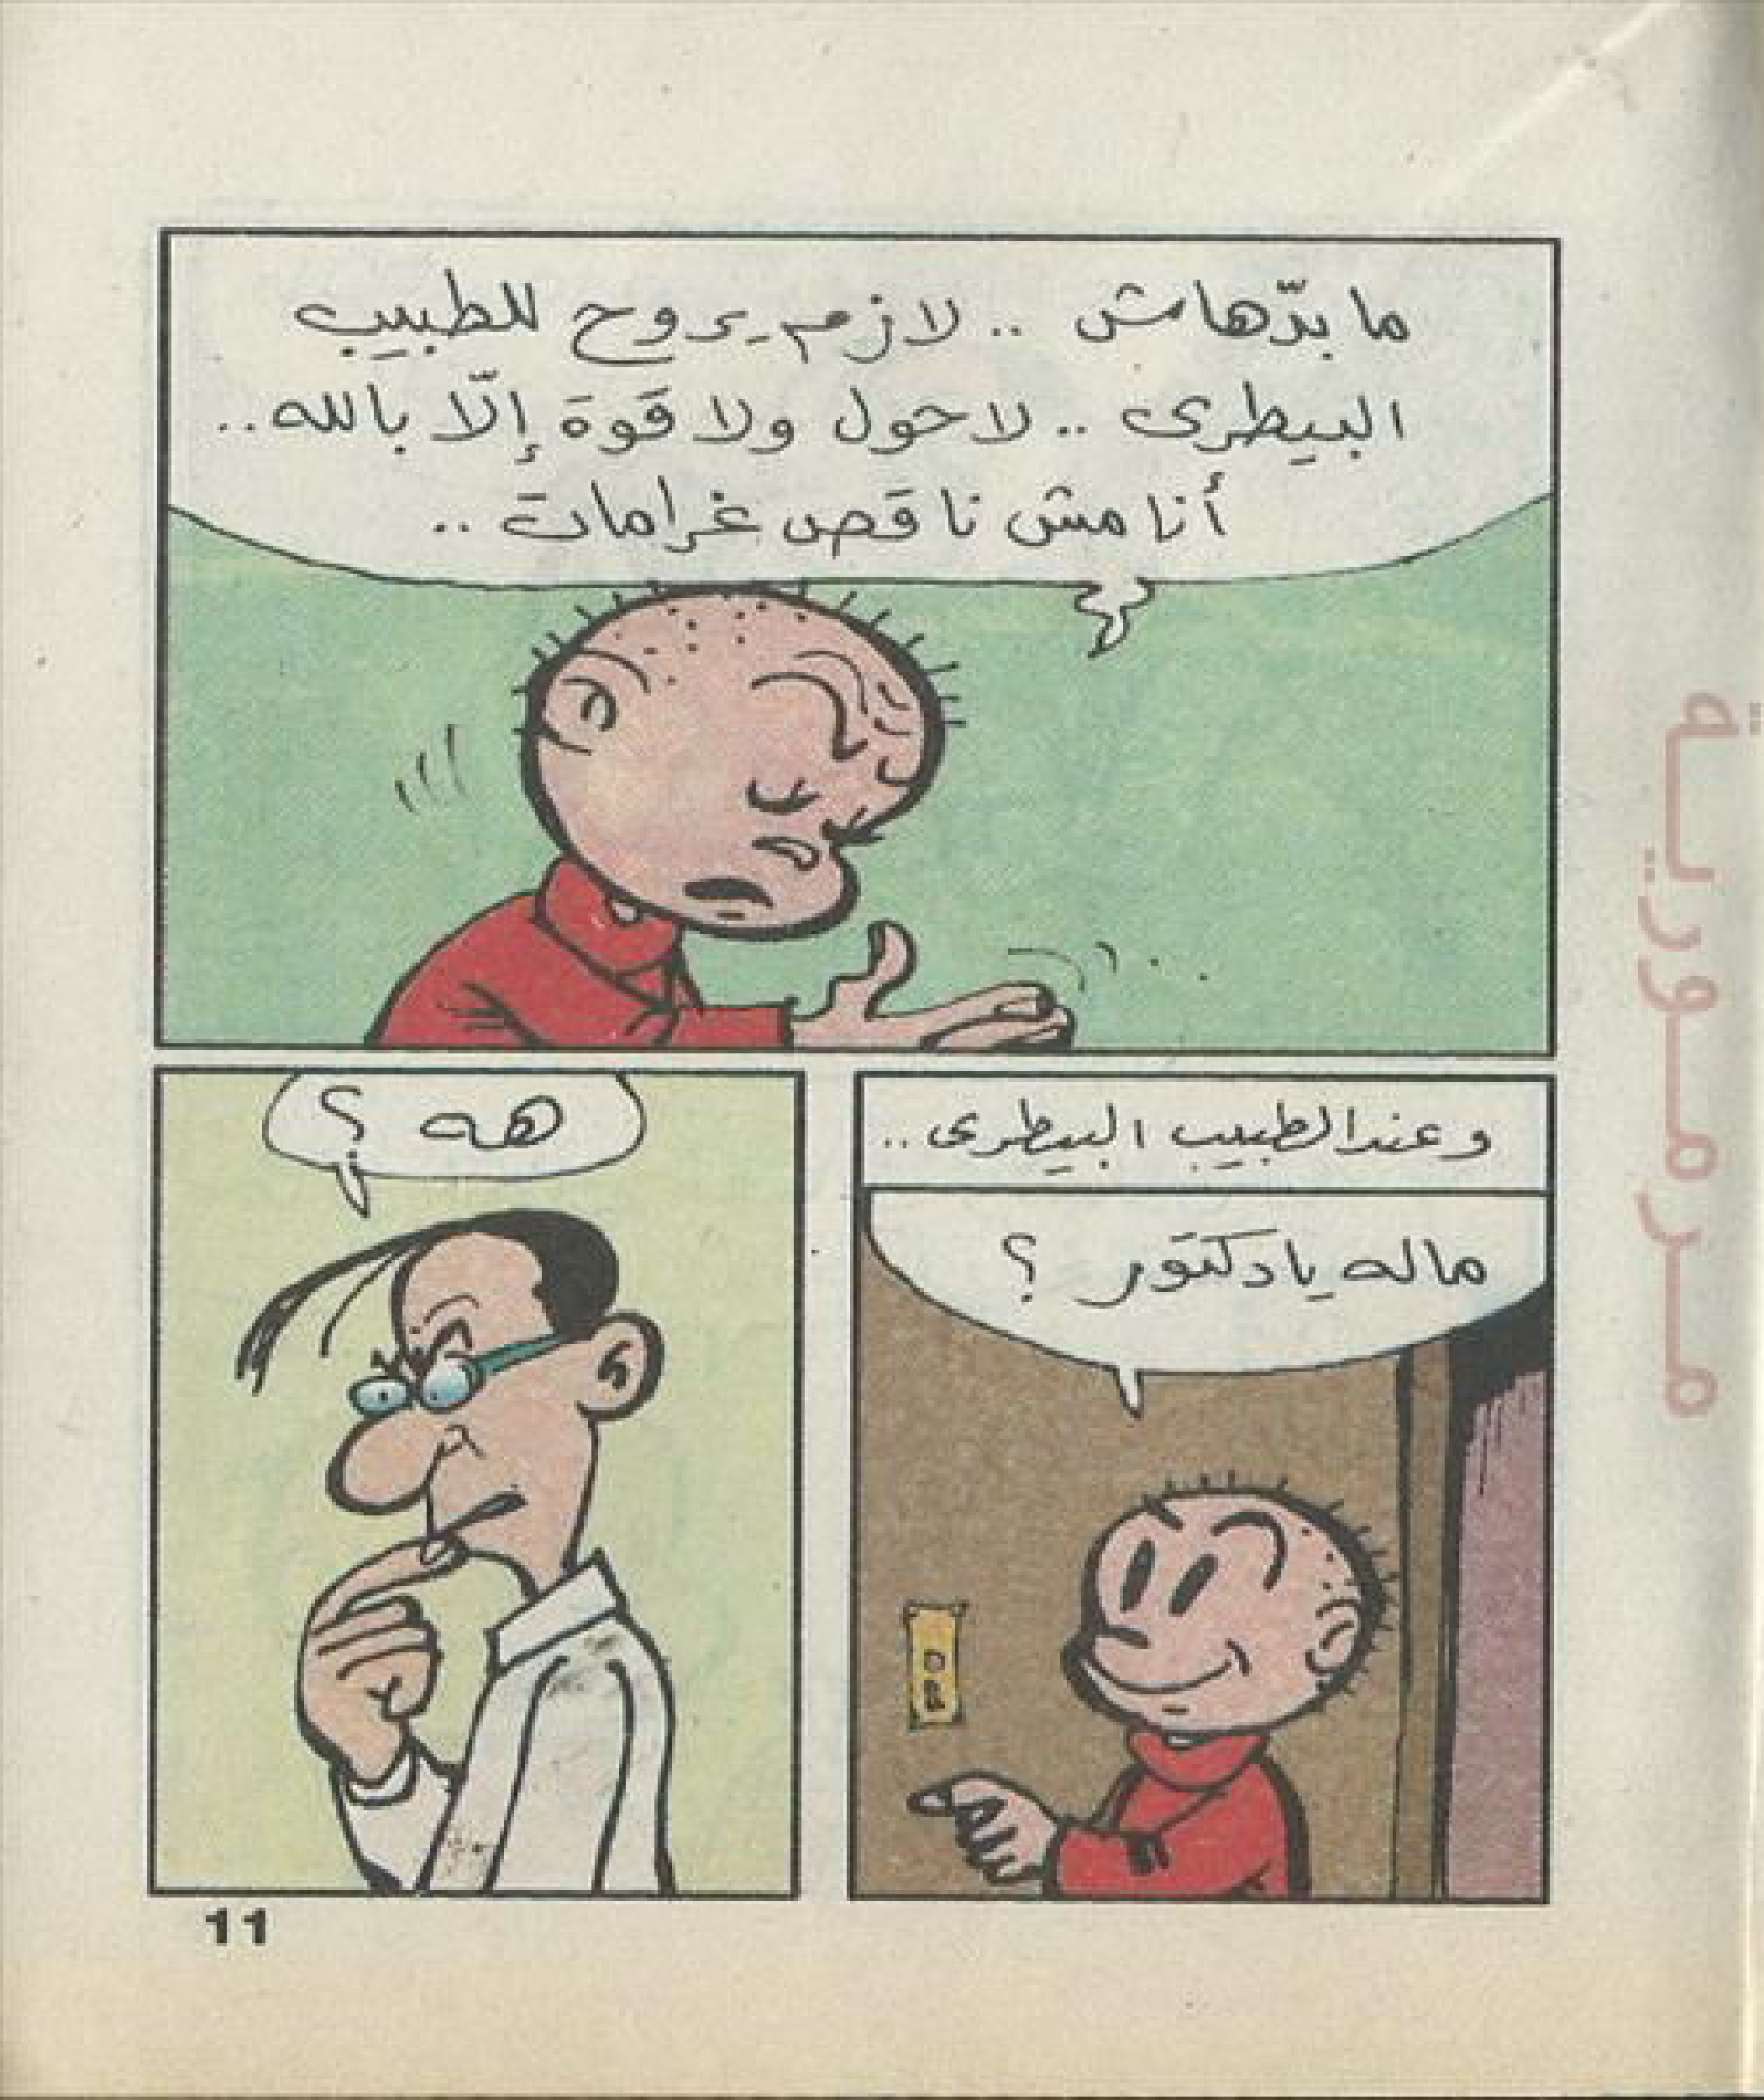 ما بدّهاش .. لازم يروح للطبيب
البيطرى .. لا حول ولا قوة إلّا بالله ..
أنا مش ناقص غرامات ..
وعند الطبيب البيطرى ..
ماله يا دكتور ؟
هه ؟
11